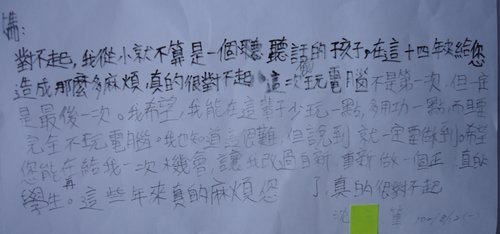 媽:
對不起,我從小就不算是一個聽 聽話的孩子,在這十四年來給您
造成那麼多麻煩,真的很對不起。這次偷玩電腦不是第一次,但一定
是最後一次。我希望,我能在這輩子少玩一點,多用功一點,而且
完全不玩電腦。我也知道這很難,但說到 就一定要做到。希望
您能在給我一次機會,讓我改過自新,重新做一個正 直的
學生。這些年來真的麻煩您 了,真的很對不起
沈 筆